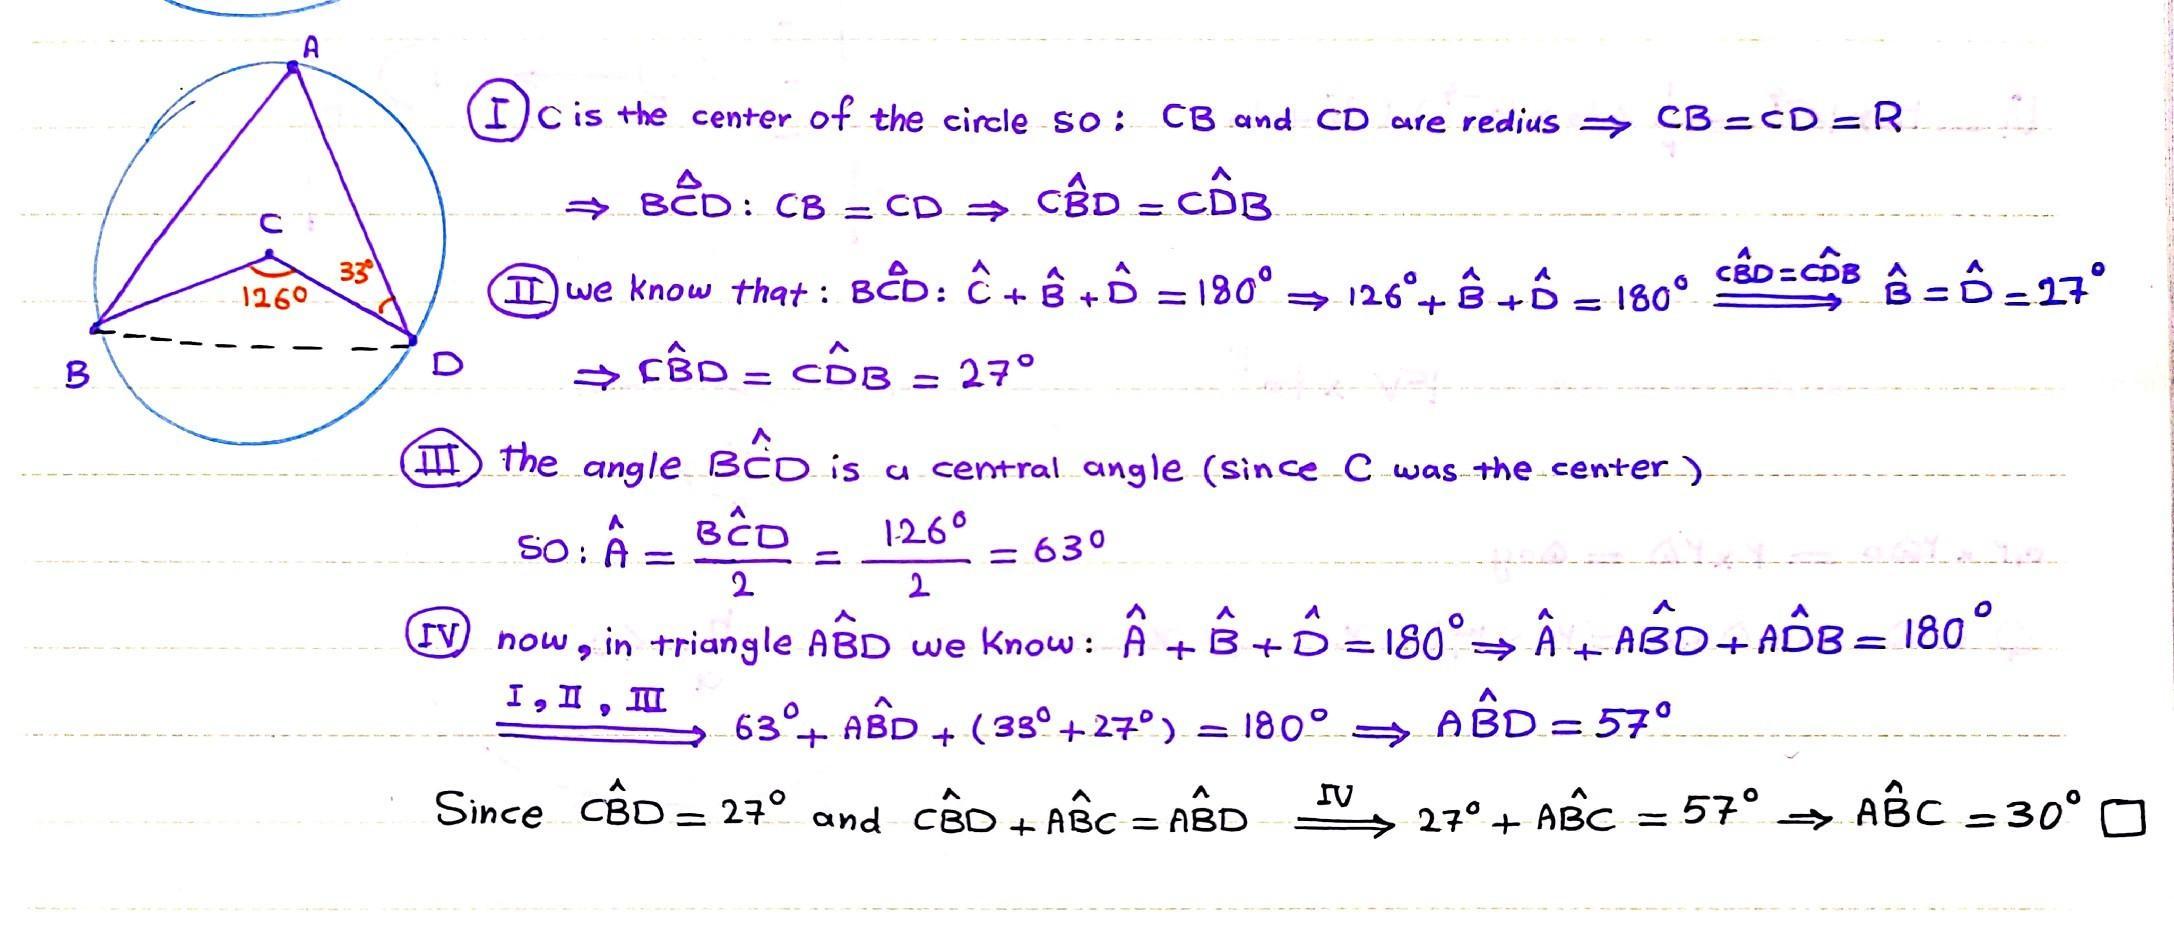 A
C
33°
126°
B
D
Ⅰ C is the center of the circle so: CB and CD are redius ⇒ CB = CD = R
⇒ BĈD: CB = CD ⇒ CB̂D = CD̂B
Ⅱ we know that: BĈD: Ĉ + B̂ + D̂ = 180° ⇒ 126° + B̂ + D̂ = 180° CB̂D = CD̂B ⟹ B̂ = D̂ = 27°
⇒ CB̂D = CD̂B = 27°
Ⅲ the angle BĈD is a central angle (since C was the center)
so: Â = BĈD/2 = 126°/2 = 63°
Ⅳ now, in triangle AB̂D we know: Â + B̂ + D̂ = 180° ⇒ Â + AB̂D + AD̂B = 180°
Ⅰ, Ⅱ, Ⅲ ⟹ 63° + AB̂D + (33° + 27°) = 180° ⇒ AB̂D = 57°
Since CB̂D = 27° and CB̂D + AB̂C = AB̂D Ⅳ ⟹ 27° + AB̂C = 57° ⇒ AB̂C = 30° □